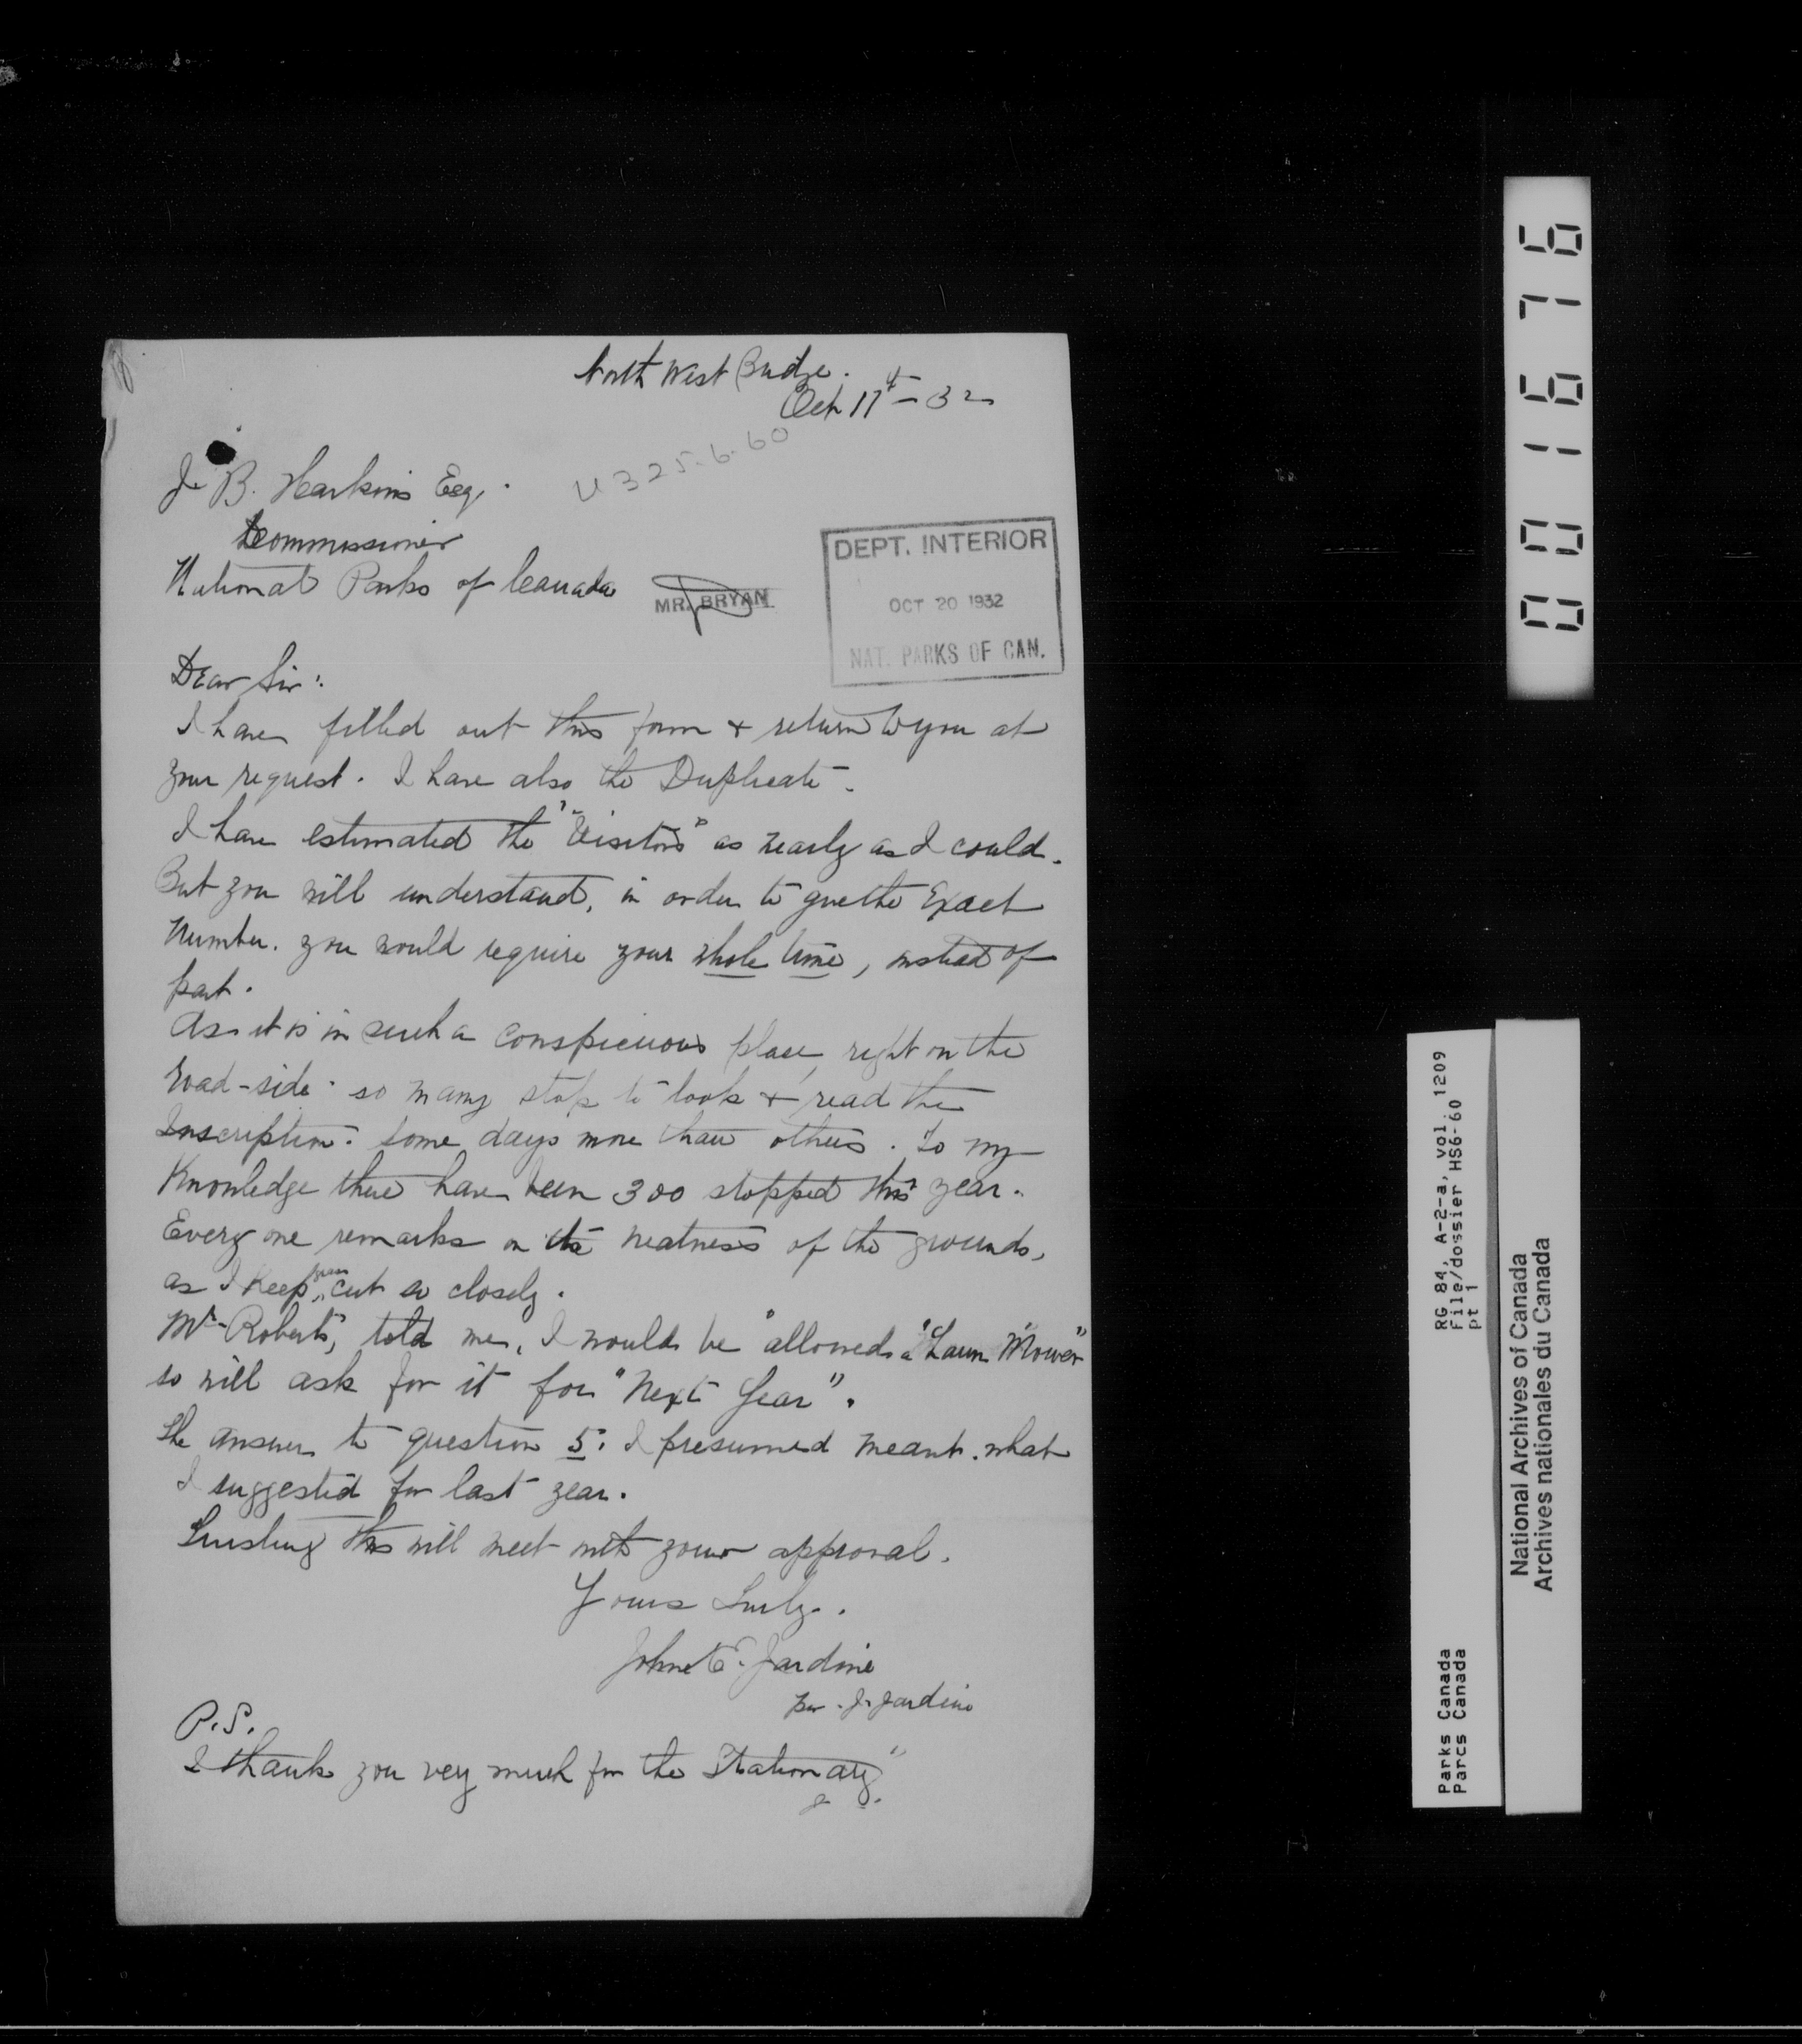 North West Bridge.
Oct 17th - 32
U325-6-60
J. B. Harkins Esq.
Commissioner
National Parks of Canada
MR. BRYAN
DEPT. INTERIOR
OCT 20 1932
NAT. PARKS OF CAN.
Dear Sir:
I have filled out this form + return to you at
your request. I have also the Duplicate.
I have estimated the "Visitors" as nearly as I could.
But you will understand, in order to give the Exact
Number. you would require your whole time, instead of
part.
As it is in such a conspicuous place, right on the
road-side. so many stop to look + read the
Inscription. some days more than others. To my
Knowledge there have been 300 stopped this year.
Every one remarks on the neatness of the grounds,
as I keep grass cut so closely.
Mr. Roberts, told me, I would be allowed a "Lawn Mower"
so will ask for it for "Next Year".
The answer to question 5. I presumed meant. what
I suggested for last year.
Trusting this will meet with your approval.
Yours Truly.
John E. Jardine
Per. J. Jardine
P.S.
I thank you very much for the Stationary"
J.
001676
RG 84, A-2-a, vol. 1209
File/dossier HS6-60
pt 1
Parks Canada
Parcs Canada
National Archives of Canada
Archives nationales du Canada